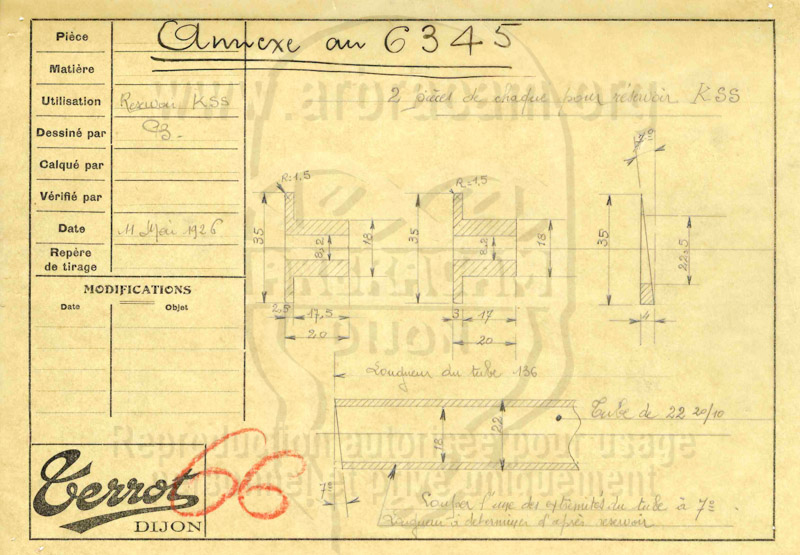 Pièce
Annexe au 6345
Matière
Utilisation
Reservoir KSS
2 pièces de chaque pour réservoir KSS
Dessiné par
Calqué par
Vérifié par
Date
11 Mai 1926
Repère
de tirage
MODIFICATIONS
Date
Objet
7°
R=1,5
R=1,5
35
8,2
18
35
8,2
18
35
22,5
2,5
17,5
20
3
17
20
4
Longueur du tube 136
Tube de 22 20/10
18
22
7°
Couper l'une des extremités du tube à 7°
Longueur à determiner d'après reservoir
Terrot
DIJON
66
www.arbracam.org
DIJON
Reproduction autorisée pour usage
personnel et privé uniquement